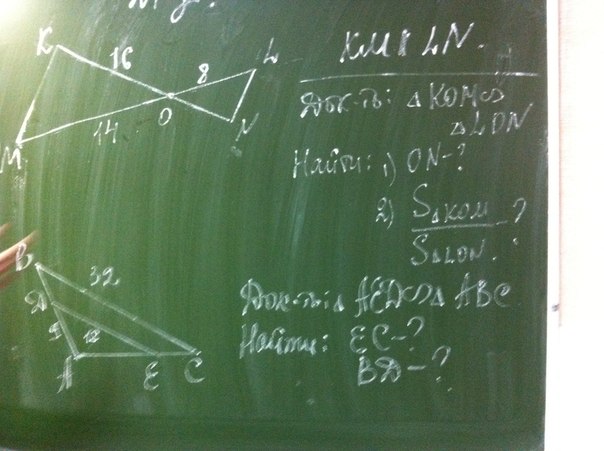 K
16
8
L
O
14
M
N
KM || LN.
Док-ть: △ KOM ∽
△ LON
Найти: 1) ON-?
2) S△KOM ?
S△LON.
B
32
Д
5
12
A
E
C
Док-ть: △ AEД ∽ △ ABC
Найти: EC-?
BД-?